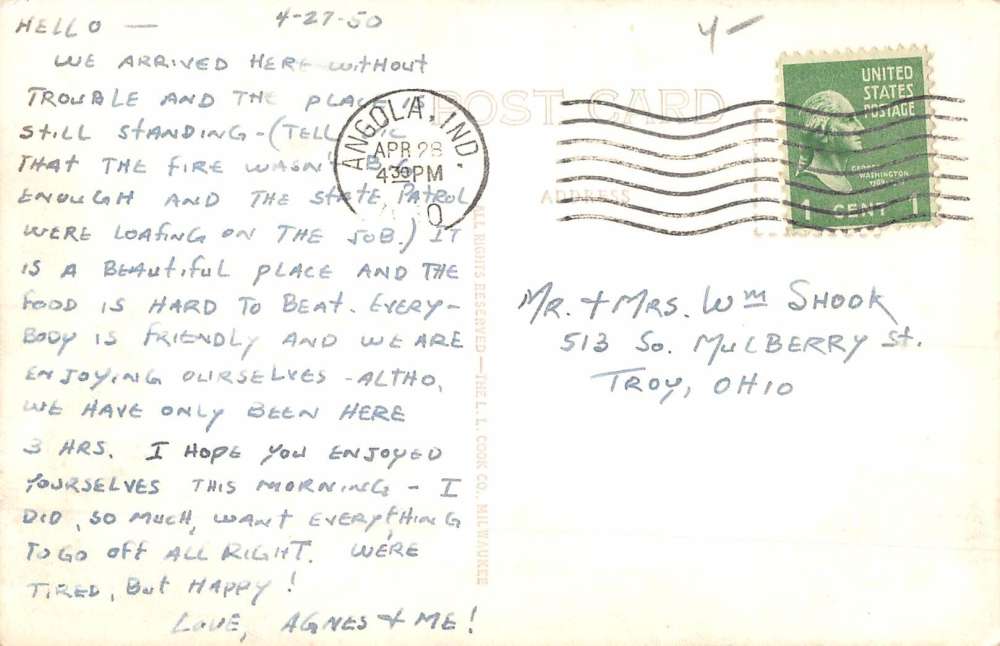 HELLO — 4-27-50
WE ARRIVED HERE WITHOUT
TROUBLE AND THE PLACE IS
STILL STANDING - (TELL
THAT THE FIRE WASN'T BIG
ENOUGH AND THE STATE PATROL
WERE LOAFING ON THE JOB.) IT
IS A BEAUTIFUL PLACE AND THE
FOOD IS HARD TO BEAT. EVERY-
BODY IS FRIENDLY AND WE ARE
ENJOYING OURSELVES - ALTHO,
WE HAVE ONLY BEEN HERE
3 HRS. I HOPE YOU ENJOYED
YOURSELVES THIS MORNING - I
DID, SO MUCH, WANT EVERYTHING
TO GO OFF ALL RIGHT. WERE
TIRED, BUT HAPPY!
LOVE, AGNES + ME!
ALL RIGHTS RESERVED—THE L. L. COOK CO., MILWAUKEE
POST CARD
ADDRESS
ANGOLA, IND.
APR 28
4 30 PM
UNITED
STATES
POSTAGE
GEORGE
WASHINGTON
1 CENT 1
MR. + MRS. WM SHOOK
513 SO. MULBERRY ST.
TROY, OHIO